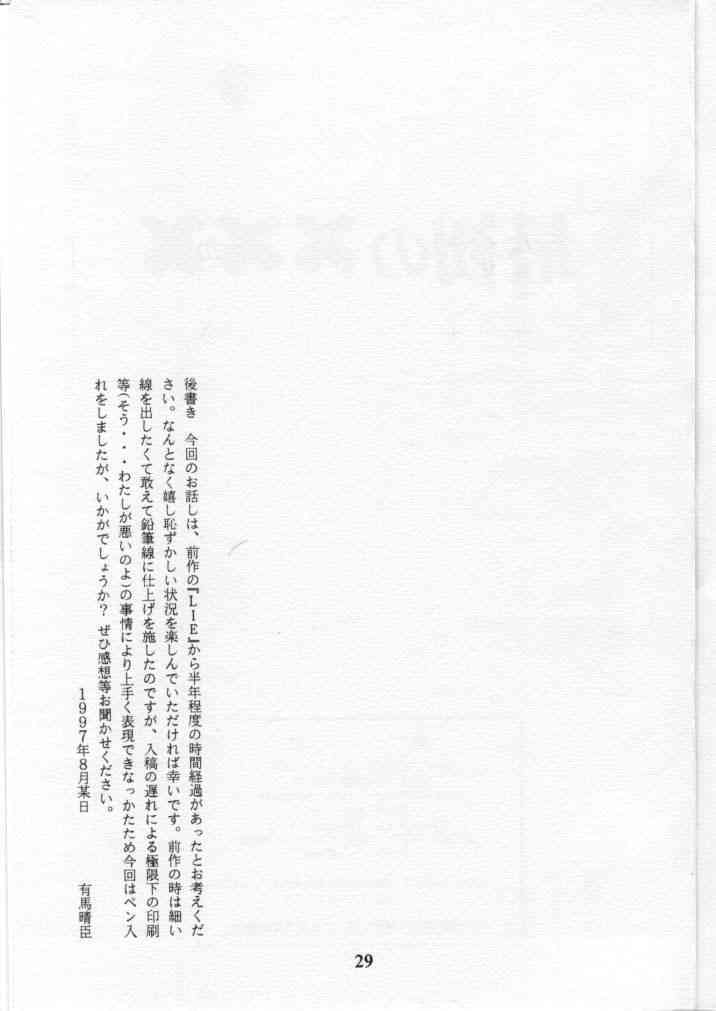 後書き　今回のお話しは、前作の『LIE』から半年程度の時間経過があったとお考えくだ
さい。なんとなく嬉し恥ずかしい状況を楽しんでいただければ幸いです。前作の時は細い
線を出したくて敢えて鉛筆線に仕上げを施したのですが、入稿の遅れによる極限下の印刷
等(そう・・・わたしが悪いのよ)の事情により上手く表現できなっかたため今回はペン入
れをしましたが、いかがでしょうか？ ぜひ感想等お聞かせください。
1997年8月某日　　有馬晴臣
29